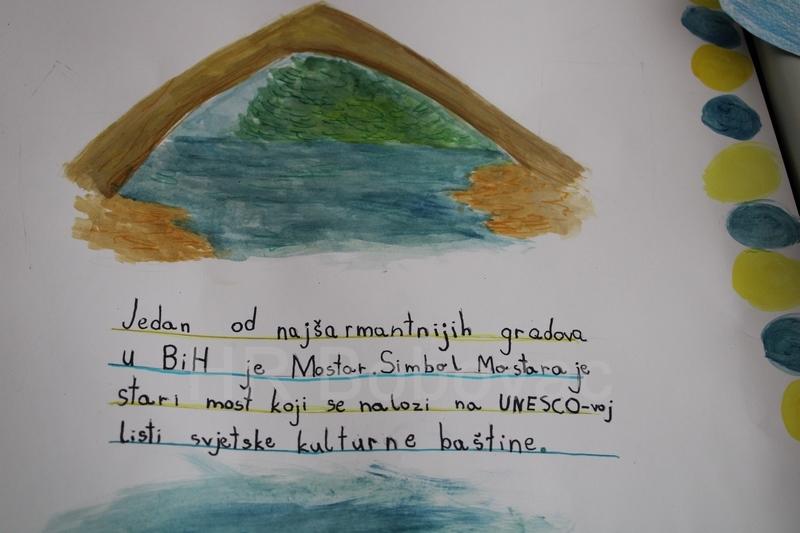 Jedan od najšarmantnijih gradova
u BiH je Mostar. Simbol Mostara je
stari most koji se nalozi na UNESCO-voj
listi svjetske kulturne baštine.